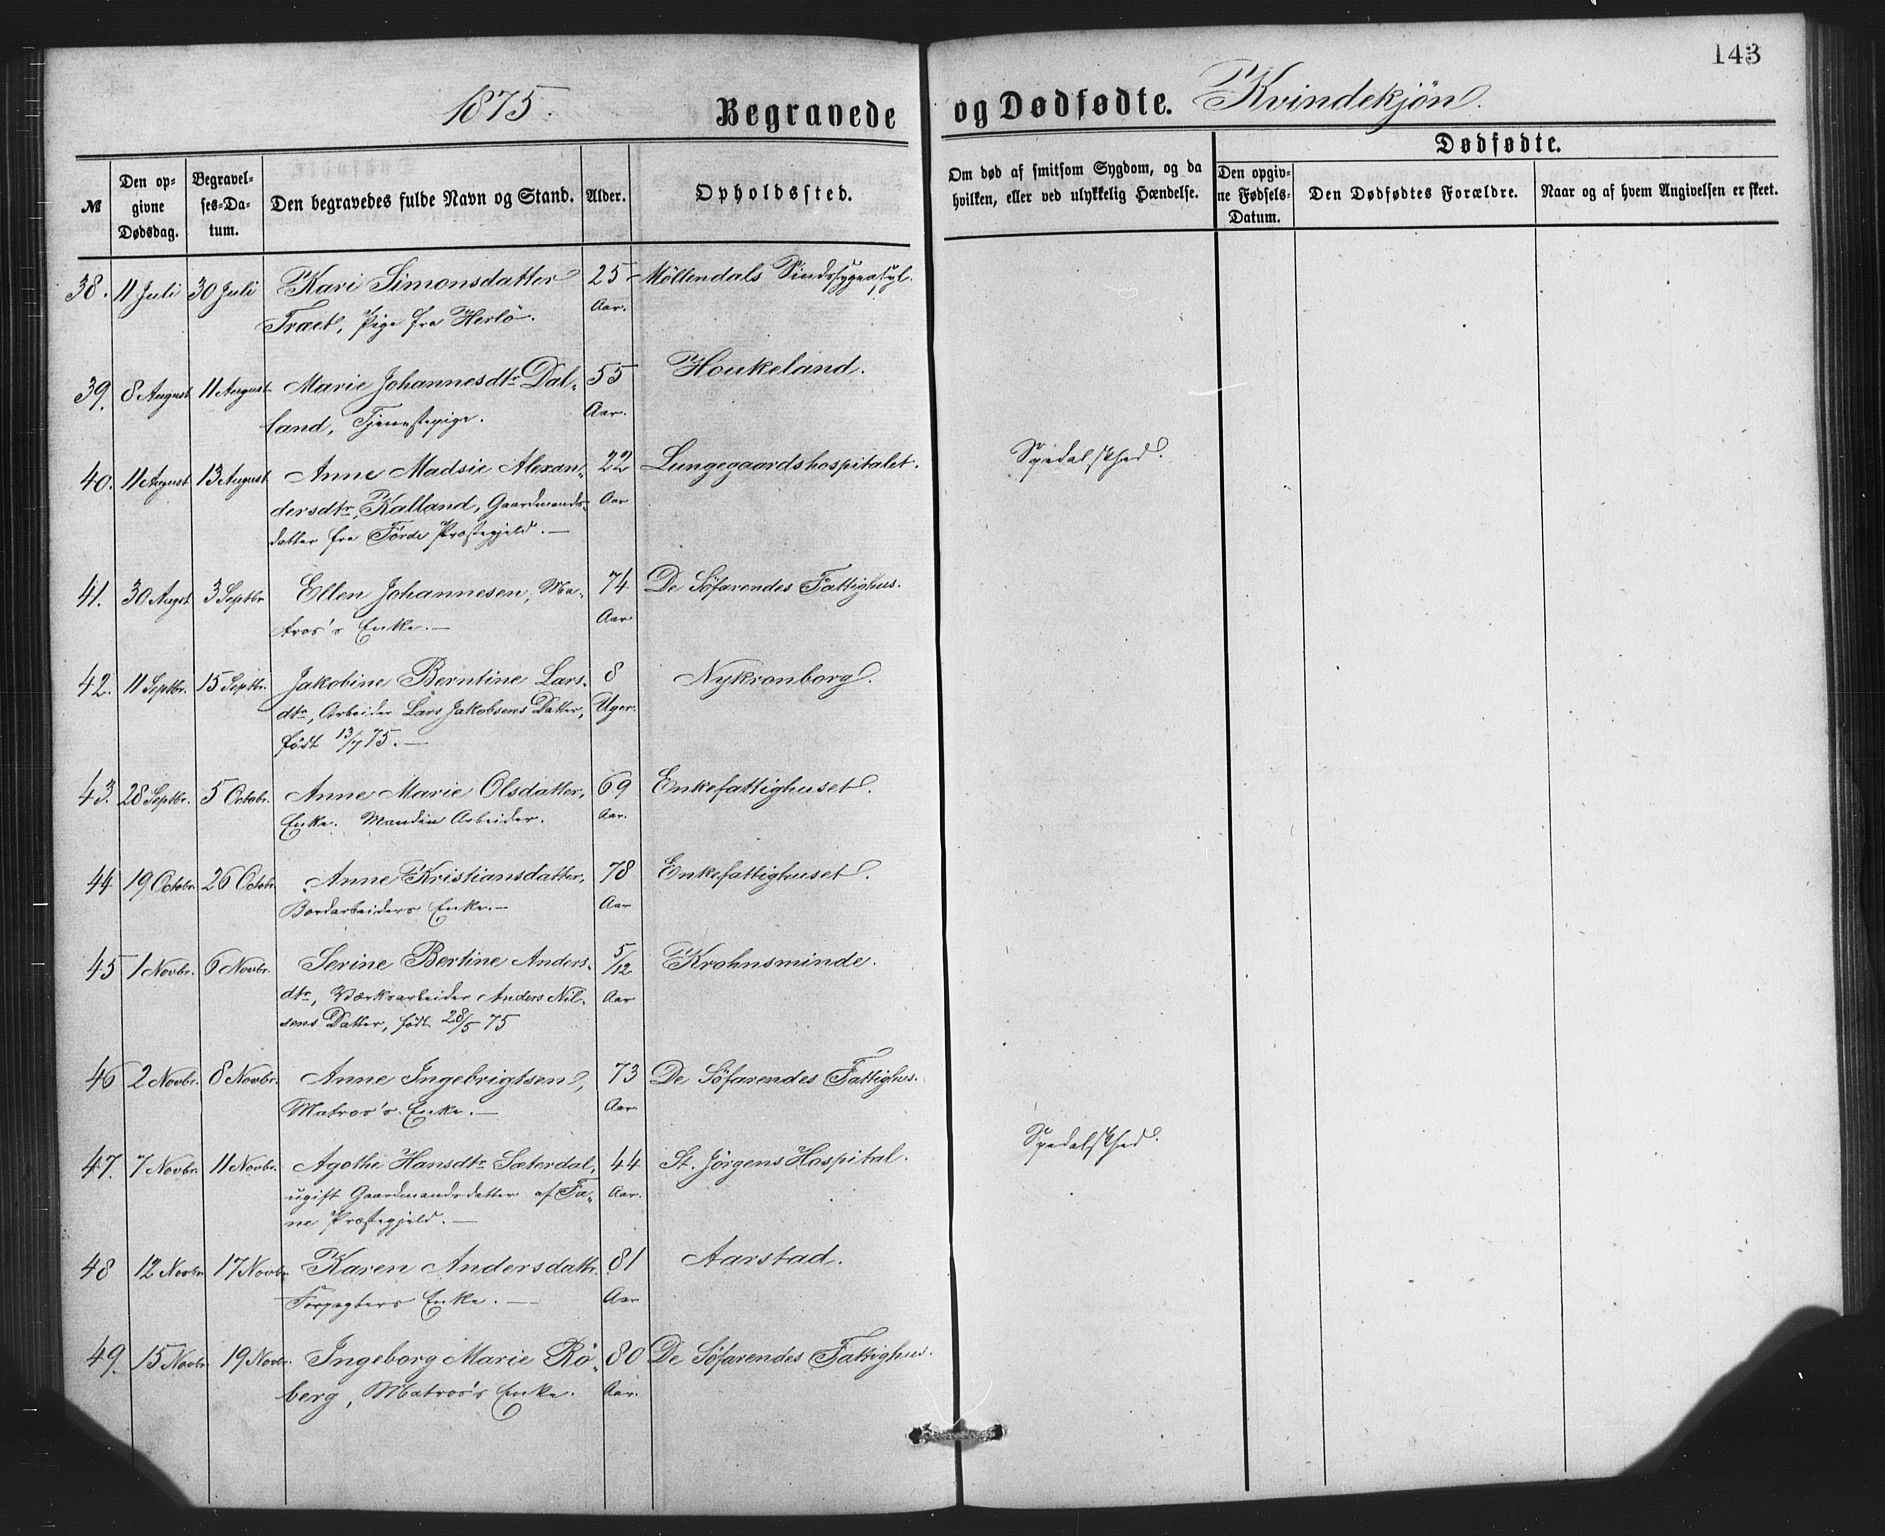 143
1875.
Begravede og Dødfødte. Kvindekjön.
№
Den op-
givne
Dødsdag.
Begravel-
ses-Da-
tum.
Den begravedes fulde Navn og Stand.
Alder.
Opholdssted.
Om død af smitsom Sygdom, og da
hvilken, eller ved ulykkelig Hændelse.
Dødfødte.
Den opgiv-
ne Fødsels-
Datum.
Den Dødfødtes Forældre.
Naar og af hvem Angivelsen er skeet.
38. 11 Juli 30 Juli Kari Simonsdatter 25 Möllendals Sindssygeasyl.
Træet, Pige fra Herlö. Aar.
39. 8 August 11 August Marie Johannesdtr Dal- 55 Houkeland.
land, Tjenestepige. Aar.
40. 11 August 13 August Anne Madsie Alexan- 22 Lungegaardshospitalet. Spedalskhed.
dersdtr, Kalland, Gaardmands- Aar
datter fra Förde Præstegjeld. —
41. 30 Augst 3 Septbr Ellen Johannesen, Ma- 74 De Söfarendes Fattighus.
tros's Enke. — Aar
42. 11 Septbr. 15 Septbr. Jakobine Berntine Lars- 8 Nykronborg.
dtr, Arbeider Lars Jakobsens Datter, Uger.
födt 13/7 75. —
43. 28 Septbr. 5 Octobr. Anne Marie Olsdatter, 69 Enkefattighuset.
Enke. Manden Arbeider. Aar.
44 19 Octobr. 26 Octobr. Anne Kristiansdatter, 78 Enkefattighuset.
Bordarbeiders Enke. — Aar
45 1 Novbr. 6 Novbr. Serine Bertine Anders- 5/12 Krohnsminde.
dtr, Værksarbeider Anders Nil- Aar
sens Datter, födt 28/5 75
46 2 Novbr. 8 Novbr. Anne Ingebrigtsen, 73 De Söfarendes Fattighus.
Matros's Enke. — Aar.
47. 7 Novbr. 11 Novbr. Agathe Hansdtr Sæterdal, 44 St. Jörgens Hospital. Spedalskhed.
ugift Gaardmandsdatter af Fa- Aar.
ne Præstegjeld. —
48 12 Novbr 17 Novbr. Karen Andersdatr. 81 Aarstad.
Forpagters Enke. — Aar
49. 15 Novbr 19 Novbr. Ingeborg Marie Rö- 80 De Söfarendes Fattighus.
berg, Matros's Enke. Aar.